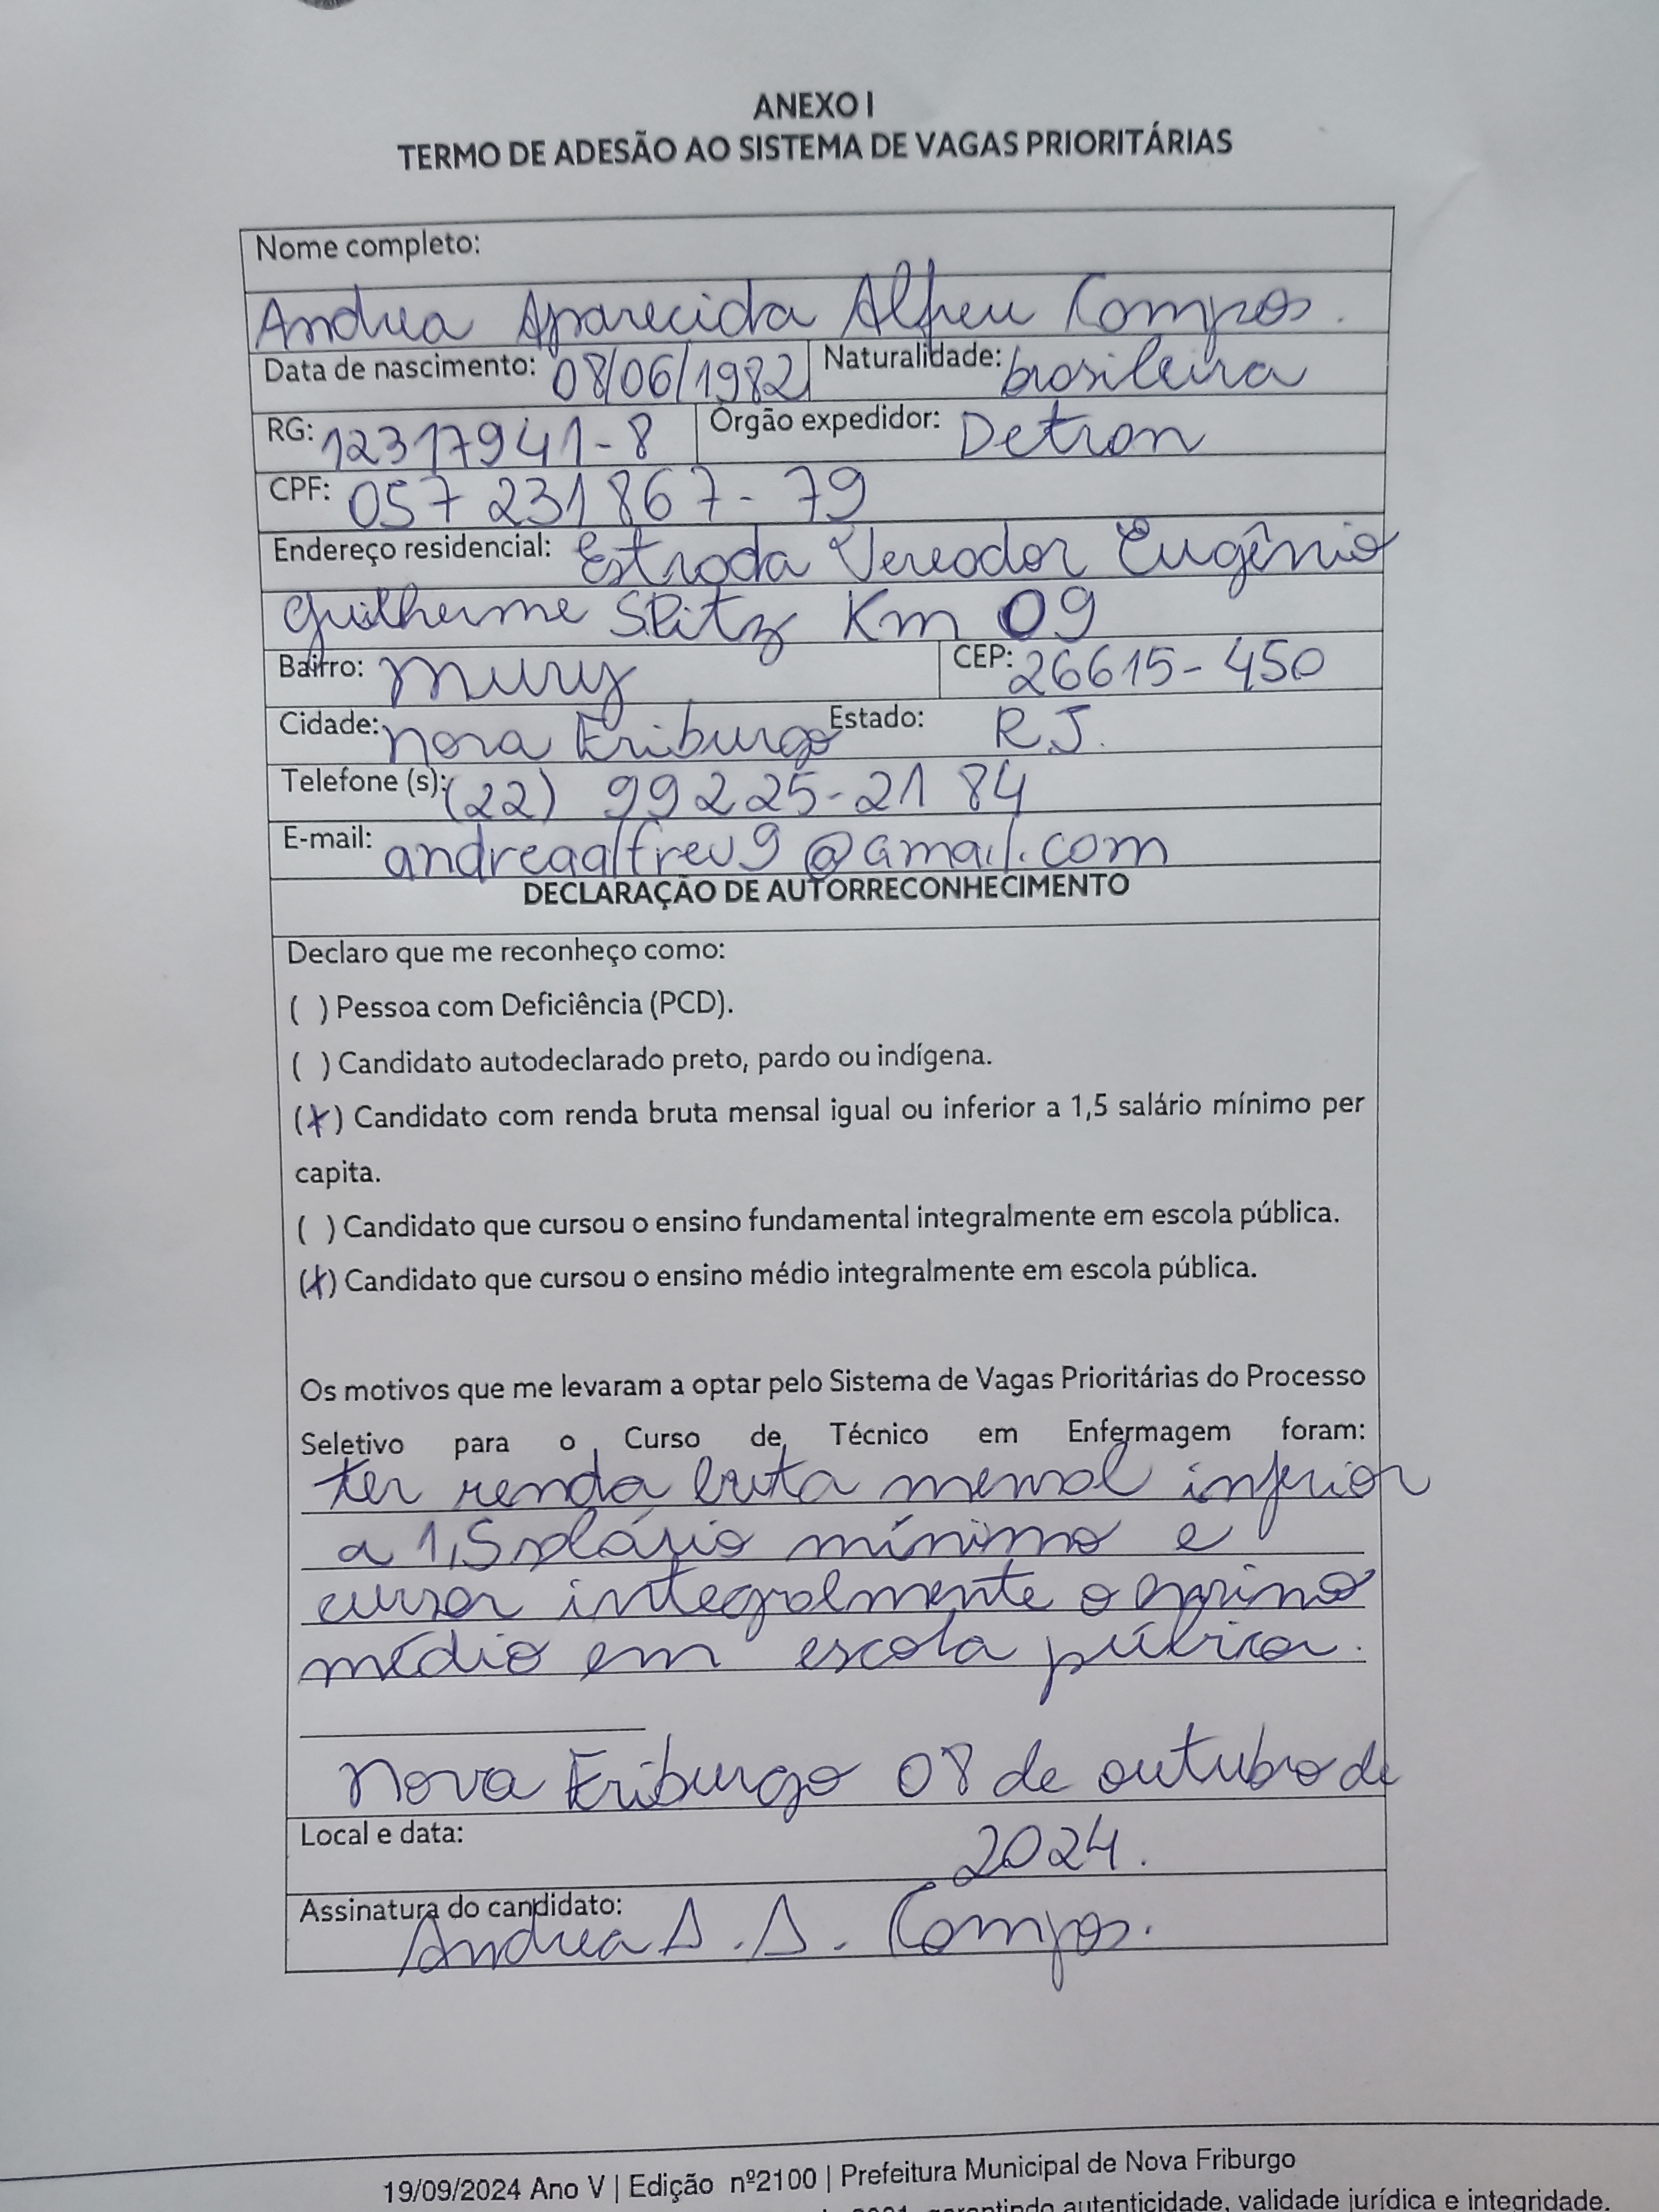 ANEXO I
TERMO DE ADESÃO AO SISTEMA DE VAGAS PRIORITÁRIAS
Nome completo:
Andrea Aparecida Alfreu Campos.
Data de nascimento: 08/06/1982 Naturalidade: brasileira
RG: 12317941-8 Órgão expedidor: Detran
CPF: 057 231 867-79
Endereço residencial: Estrada Vereador Eugênio
Guilherme Spitz Km 09
Bairro: Mury CEP: 26615-450
Cidade: Nova Friburgo Estado: RJ.
Telefone (s): (22) 99225-2184
E-mail: andreaalfreu9@gmail.com
DECLARAÇÃO DE AUTORRECONHECIMENTO
Declaro que me reconheço como:
( ) Pessoa com Deficiência (PCD).
( ) Candidato autodeclarado preto, pardo ou indígena.
(x) Candidato com renda bruta mensal igual ou inferior a 1,5 salário mínimo per
capita.
( ) Candidato que cursou o ensino fundamental integralmente em escola pública.
(x) Candidato que cursou o ensino médio integralmente em escola pública.
Os motivos que me levaram a optar pelo Sistema de Vagas Prioritárias do Processo
Seletivo para o Curso de Técnico em Enfermagem foram:
ter renda bruta mensal inferior
a 1,5 salário mínimo e
cursar integralmente o ensino
médio em escola pública.
Nova Friburgo 08 de outubro de
Local e data: 2024.
Assinatura do candidato:
Andrea A. A. Campos.
19/09/2024 Ano V | Edição nº2100 | Prefeitura Municipal de Nova Friburgo
garantindo autenticidade, validade jurídica e integridade.